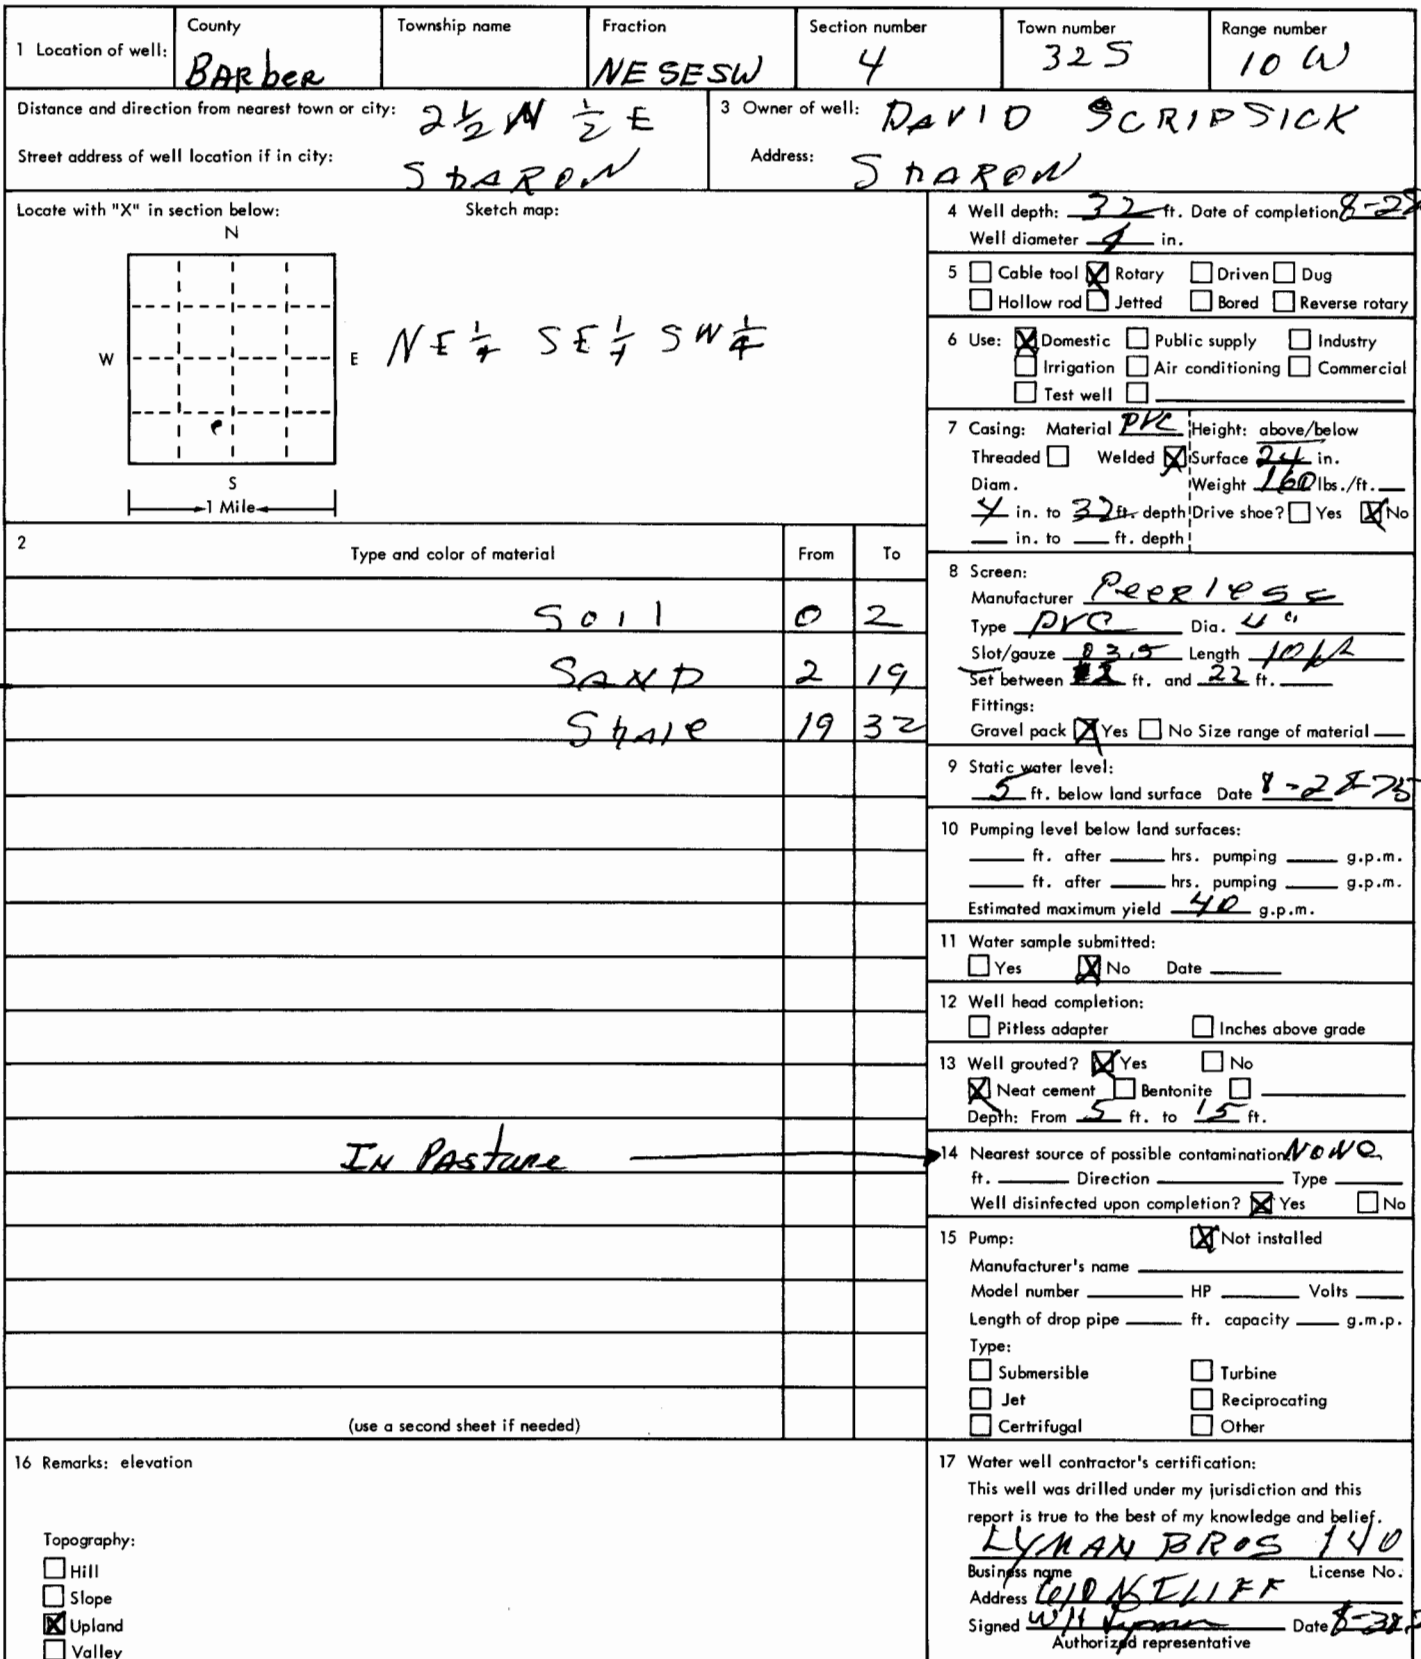 1 Location of well: County Township name Fraction Section number Town number Range number
BARbER NESESW 4 32S 10 W
Distance and direction from nearest town or city: 2 1/2 N 1/2 E
Street address of well location if in city: SHARON
3 Owner of well: DAVID SCRIPSICK
Address: SHARON
Locate with "X" in section below: Sketch map:
N
W E
S
1 Mile
NE 1/4 SE 1/4 SW 1/4
4 Well depth: 32 ft. Date of completion 8-28
Well diameter 4 in.
5 Cable tool X Rotary Driven Dug
Hollow rod Jetted Bored Reverse rotary
6 Use: X Domestic Public supply Industry
Irrigation Air conditioning Commercial
Test well
7 Casing: Material PVC Height: above/below
Threaded Welded X Surface 24 in.
Diam. Weight 160 lbs./ft.
4 in. to 32 ft. depth Drive shoe? Yes X No
in. to ft. depth
2 Type and color of material From To
Soil 0 2
SAND 2 19
Shale 19 32
In Pasture
(use a second sheet if needed)
8 Screen:
Manufacturer Peerless
Type PVC Dia. 4"
Slot/gauze 035 Length 10ft
Set between ft. and 22 ft.
Fittings:
Gravel pack X Yes No Size range of material
9 Static water level:
5 ft. below land surface Date 8-28-75
10 Pumping level below land surfaces:
ft. after hrs. pumping g.p.m.
ft. after hrs. pumping g.p.m.
Estimated maximum yield 40 g.p.m.
11 Water sample submitted:
Yes X No Date
12 Well head completion:
Pitless adapter Inches above grade
13 Well grouted? X Yes No
X Neat cement Bentonite
Depth: From 5 ft. to 15 ft.
14 Nearest source of possible contamination NONE
ft. Direction Type
Well disinfected upon completion? X Yes No
15 Pump: X Not installed
Manufacturer's name
Model number HP Volts
Length of drop pipe ft. capacity g.m.p.
Type:
Submersible Turbine
Jet Reciprocating
Certrifugal Other
16 Remarks: elevation
Topography:
Hill
Slope
X Upland
Valley
17 Water well contractor's certification:
This well was drilled under my jurisdiction and this
report is true to the best of my knowledge and belief.
LYMAN BROS 140
Business name License No.
Address 610 N ILIFF
Signed WH Lyman Date
Authorized representative